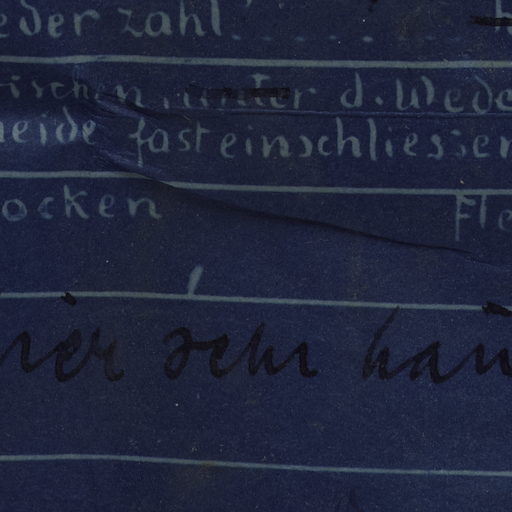 eder zahl
ischen unter d. Wede
heide fast einschliessen
ocken Fle
hier sehr hau